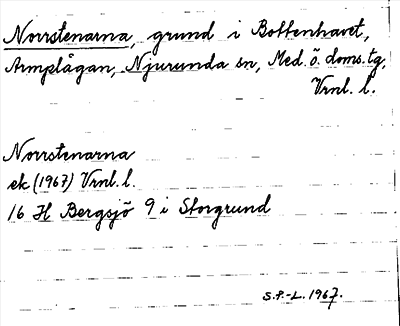 Norrstenarna, grund i Bottenhavet,
Armplågan, Njurunda sn, Med. ö. doms. tg,
Vrnl. l.
Norrstenarna
ek (1967) Vrnl. l.
16 H Bergsjö 9 i Storgrund
S.P.-L. 1967.